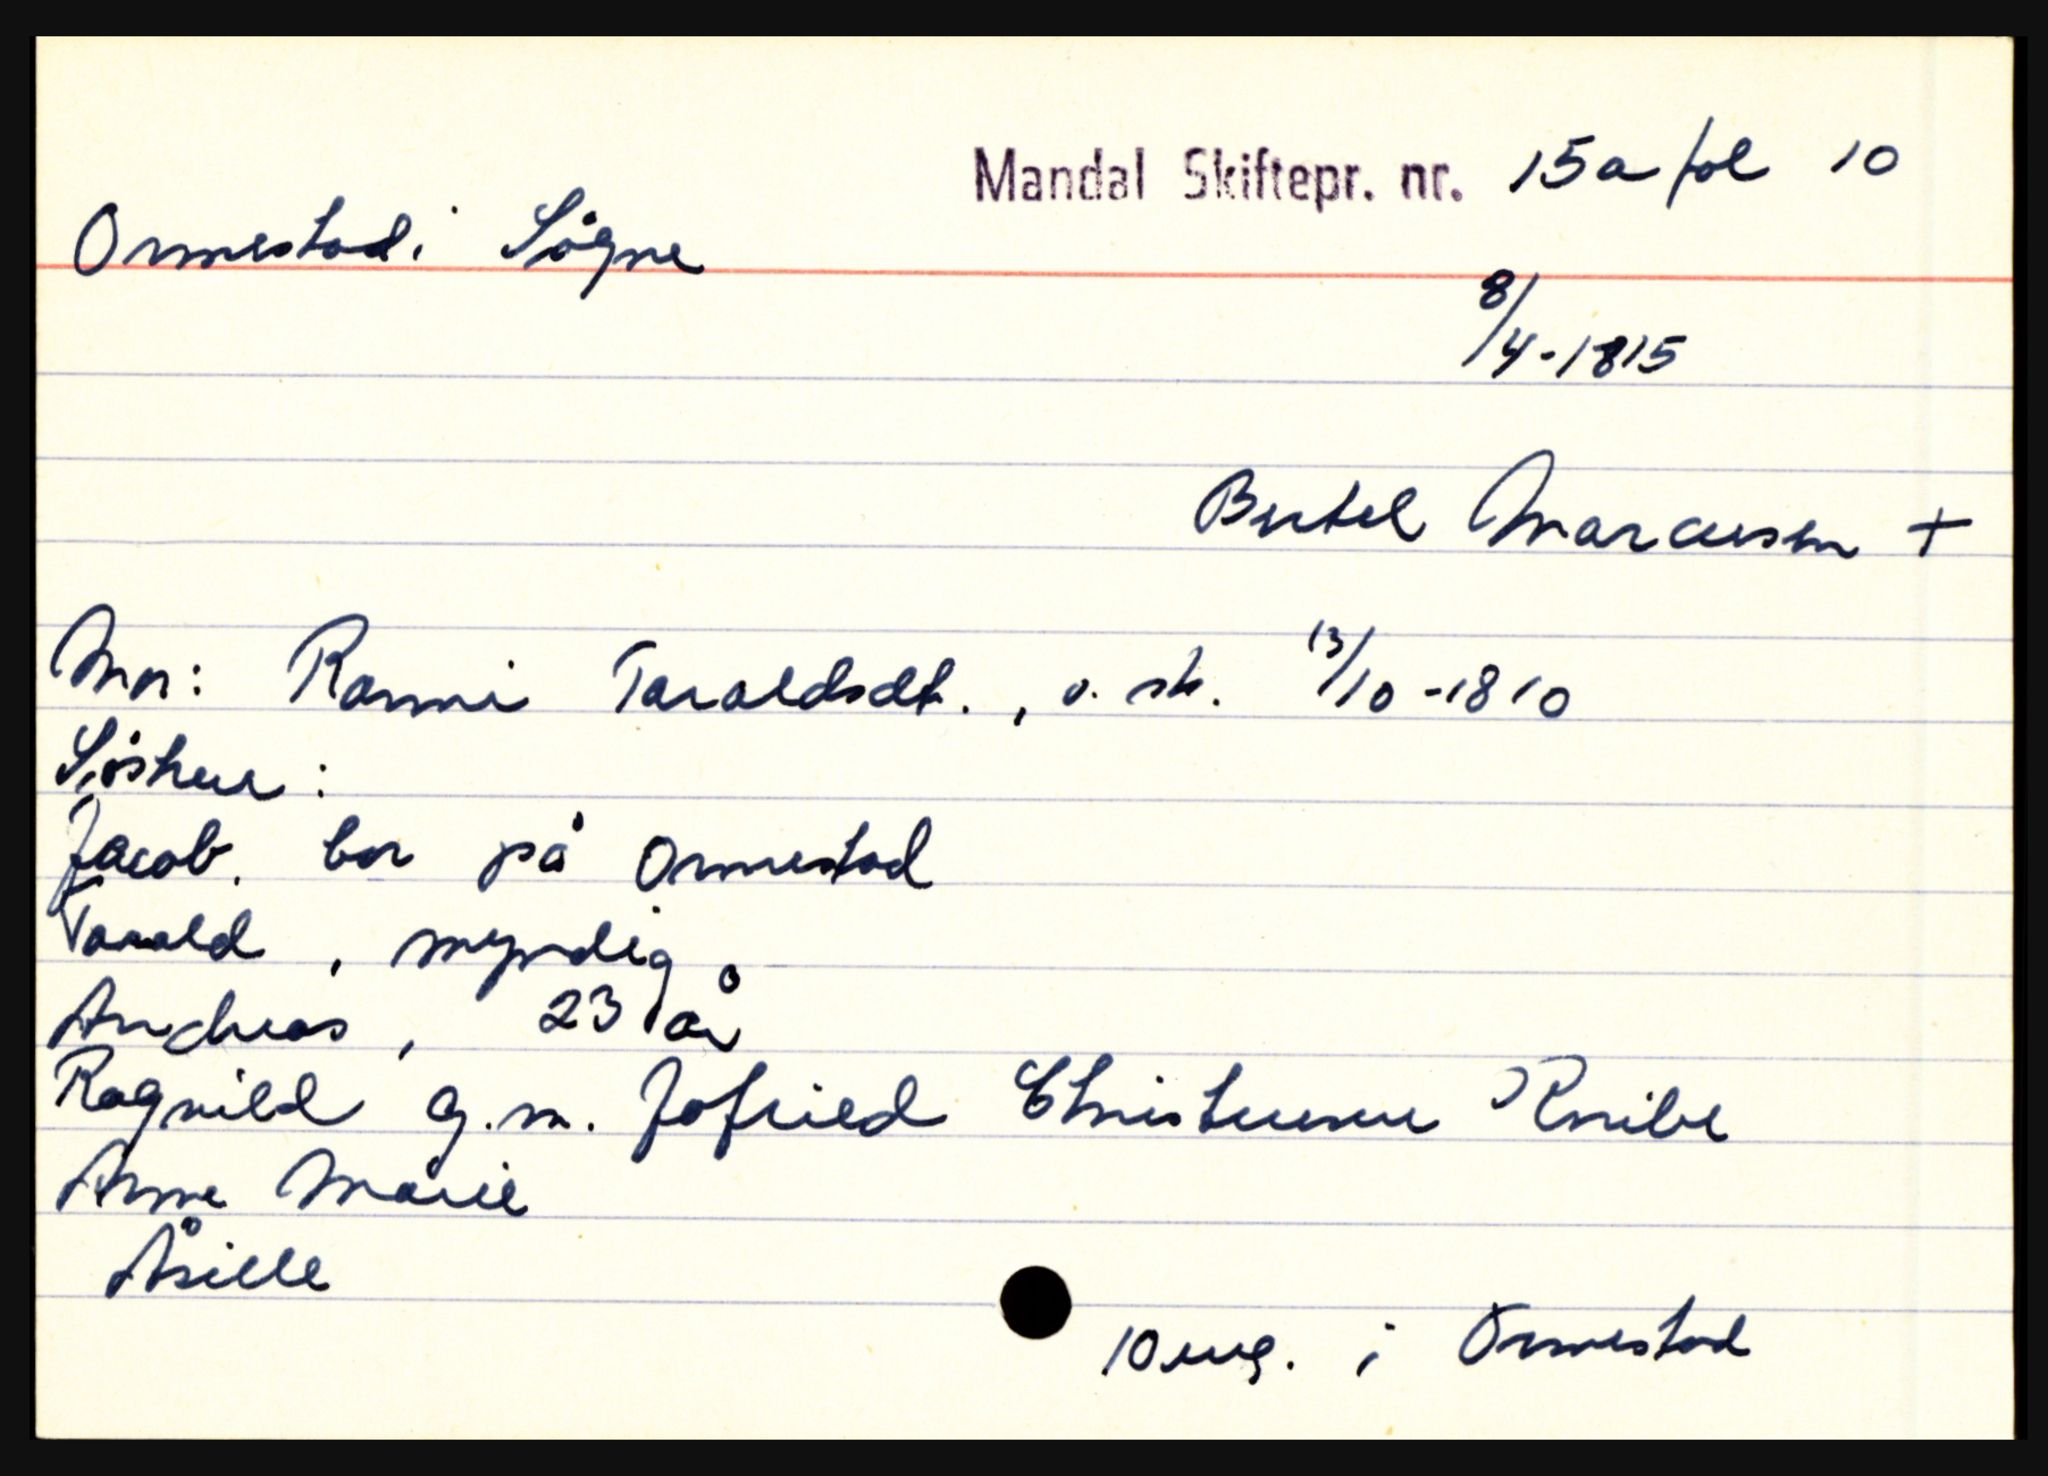 Mandal Skiftepr. nr. 15a fol 10
Ormestad i Søgne
8/4-1815
Bertel Marcusen +
Mor: Ranni Taraldsdt., v. sk. 13/10-1810
Søsken:
Jacob, bor på Ormestad
Tarald, myndig
Andreas, 23 år
Ragnild g.m. Jofried Christensen Knibe
Anne Marie
Åsille
10 eng. i Ormestad